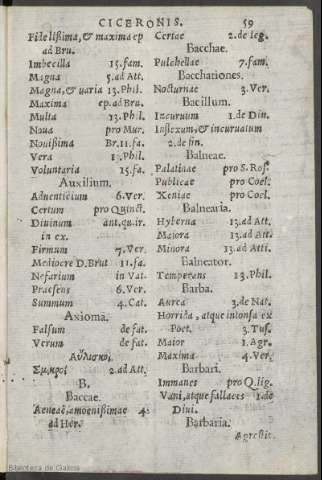 CICERONIS. 59
Fidelißima, & maxima ep
ad Bru.
Imbecilla 15. fam.
Magna 5. ad Att.
Magna, & uaria 13. Phil.
Maxima ep. ad Bru.
Multa 13. Phil.
Noua pro Mur.
Nouißima Br. 11. fa.
Vera 13. Phil.
Voluntaria 15. fa.
Auxilium.
Aduenticium 6. Ver.
Certum pro Quincti.
Diuinum ant. qu. ir.
in ex.
Firmum 7. Ver.
Mediocre D. Brut 11. fa.
Nefarium in Vat.
Praesens 6. Ver.
Summum 4. Cat.
Axioma.
Falsum de fat.
Verum de fat.
Αὐλισκοι.
Σμικροὶ 2. ad Att.
B.
Baccae.
Aeneae, amoenißimae 4.
ad Her.
Certae 2. de leg.
Bacchae.
Pulchellae 7. fam.
Bacchationes.
Nocturnae 3. Ver.
Bacillum.
Incuruum 1. de Din.
Inflexum, & incuruatum
2. de fin.
Balneae.
Palatinae pro S. Ros.
Publicae pro Coel.
Xeniae pro Coel.
Balnearia.
Hyberna 13. ad Att.
Maiora 13. ad Att.
Minora 13. ad Atti.
Balneator.
Temperans 13. Phil.
Barba.
Aurea 3. de Nat.
Horrida, atque intonsa ex
Poet. 3. Tus.
Maior 1. Agr.
Maxima 4. Ver.
Barbari.
Immanes pro Q. lig.
Vani, atque fallaces 1. de
Diui.
Barbaria.
Agrestis.
Biblioteca de Galicia